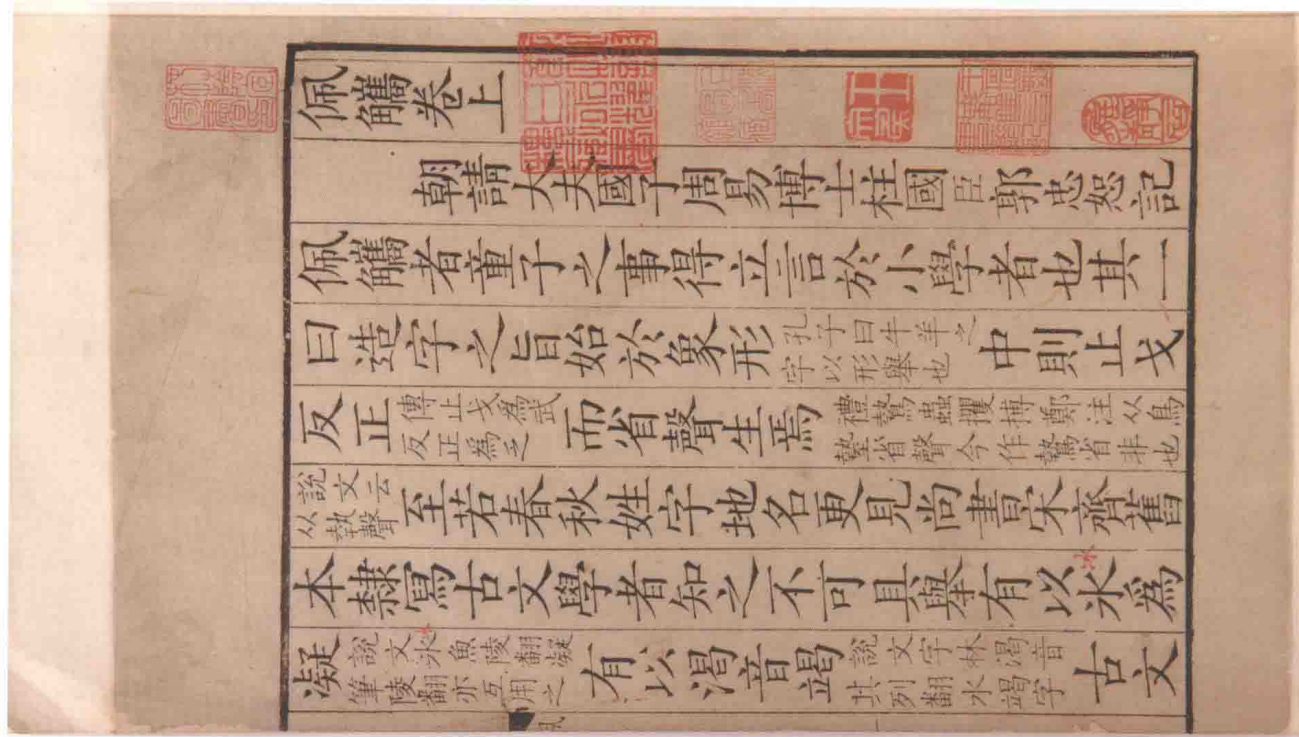 佩觿卷上
朝請大夫國子周易博士柱國臣郭忠恕記
佩觿者童子之事得立言於小學者也其一
曰造字之旨始於象形孔子曰牛羊之字以形舉也中則止戈
反正傳止戈為武反正為乏而省聲生焉禮鷙蟲攫搏鄭注从鳥省聲今作省非也
說文云从執聲至若春秋姓字地名更見尚書宋齊舊
本隸寫古文學者知之不可具舉有以冰爲
凝說文冰魚陵翻凝筆陵翻亦互用之有以渴音竭說文字林渴音其列翻水竭字古文